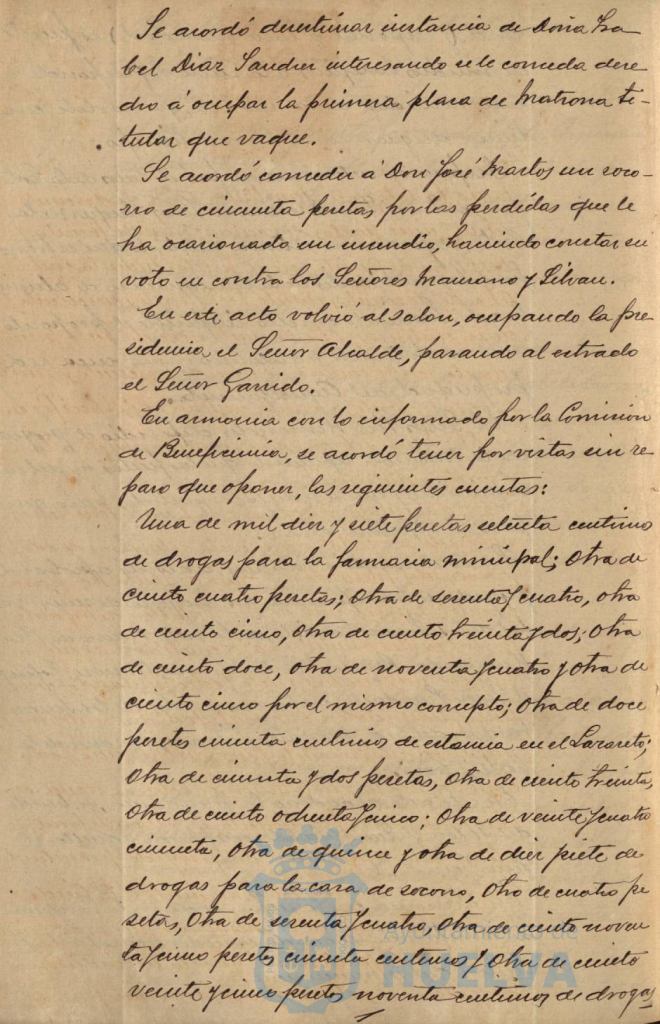 Se acordó desestimar instancia de Doña Isa-
bel Diaz Sandier interesando se le conceda dere-
cho á ocupar la primera plaza de Matrona ti-
tular que vaque.
Se acordó conceder á Don José Martos un soco-
rro de cincuenta pesetas por las perdidas que le
ha ocasionado un incendio, haciendo constar su
voto en contra los Señores Manzano y Silvan.
En este acto volvió al salon, ocupando la pre-
sidencia, el Señor Alcalde, pasando al estrado
el Señor Garrido.
En armonia con lo informado por la Comision
de Beneficencia, se acordó tener por vistas sin re-
paro que oponer, las siguientes cuentas:
Una de mil diez y siete pesetas setenta centimos
de drogas para la farmacia municipal; Otra de
ciento cuatro pesetas; Otra de sesenta y cuatro, otra
de ciento cinco, Otra de ciento treinta y dos; Otra
de ciento doce, Otra de noventa y cuatro y Otra de
ciento cinco por el mismo concepto; Otra de doce
pesetas cincuenta centimos de estancia en el Lazareto;
Otra de cincuenta y dos pesetas, Otra de ciento treinta,
Otra de ciento ochenta y cinco; Otra de veinte y cuatro
cincuenta, Otra de quince y otra de diez y siete de
drogas para la casa de socorro, Otro de cuatro pe
setas, Otra de sesenta y cuatro, Otra de ciento noven
ta y cinco pesetas cincuenta centimos y Otra de ciento
veinte y cinco pesetas noventa centimos de drogas
Ayuntamiento de
HUELVA